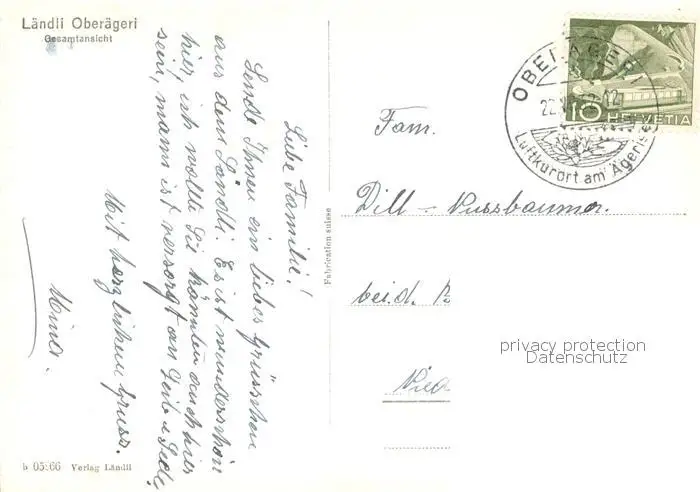 Ländli Oberägeri
Gesamtansicht
Liebe Familie!
Sende Ihnen ein liebes Grüsschen
aus dem Ländli. Es ist wunderschön
hier, ich wollte Sie könnten auch hier
sein, mann ist versorgt an Leib u Seele,
Mit herzlichem Gruss.
b 05866 Verlag Ländli
Fabrication suisse
OBERÄGERI
22. 12
Luftkurort am Ägerisee
10 HELVETIA
Fam.
Dill-Nussbaumer.
bei.d.
privacy protection
Datenschutz